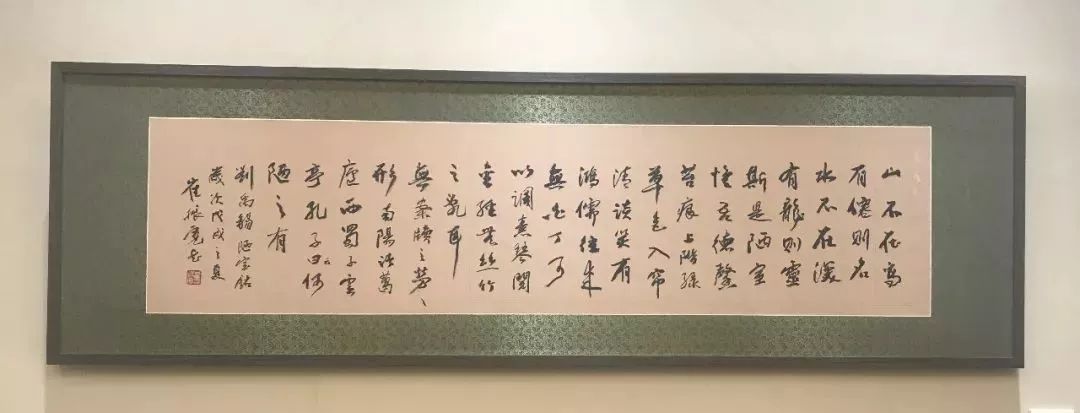 山不在高
有僊則名
水不在深
有龍則靈
斯是陋室
惟吾德馨
苔痕上階緑
草色入帘
清談笑有
鴻儒往來
無白丁可
以調素琴閱
金經無絲竹
之亂耳
無案牘之勞
形南陽諸葛
廬西蜀子雲
亭孔子曰何
陋之有
劉禹錫陋室銘
歲次戊戌之夏
崔振寬書